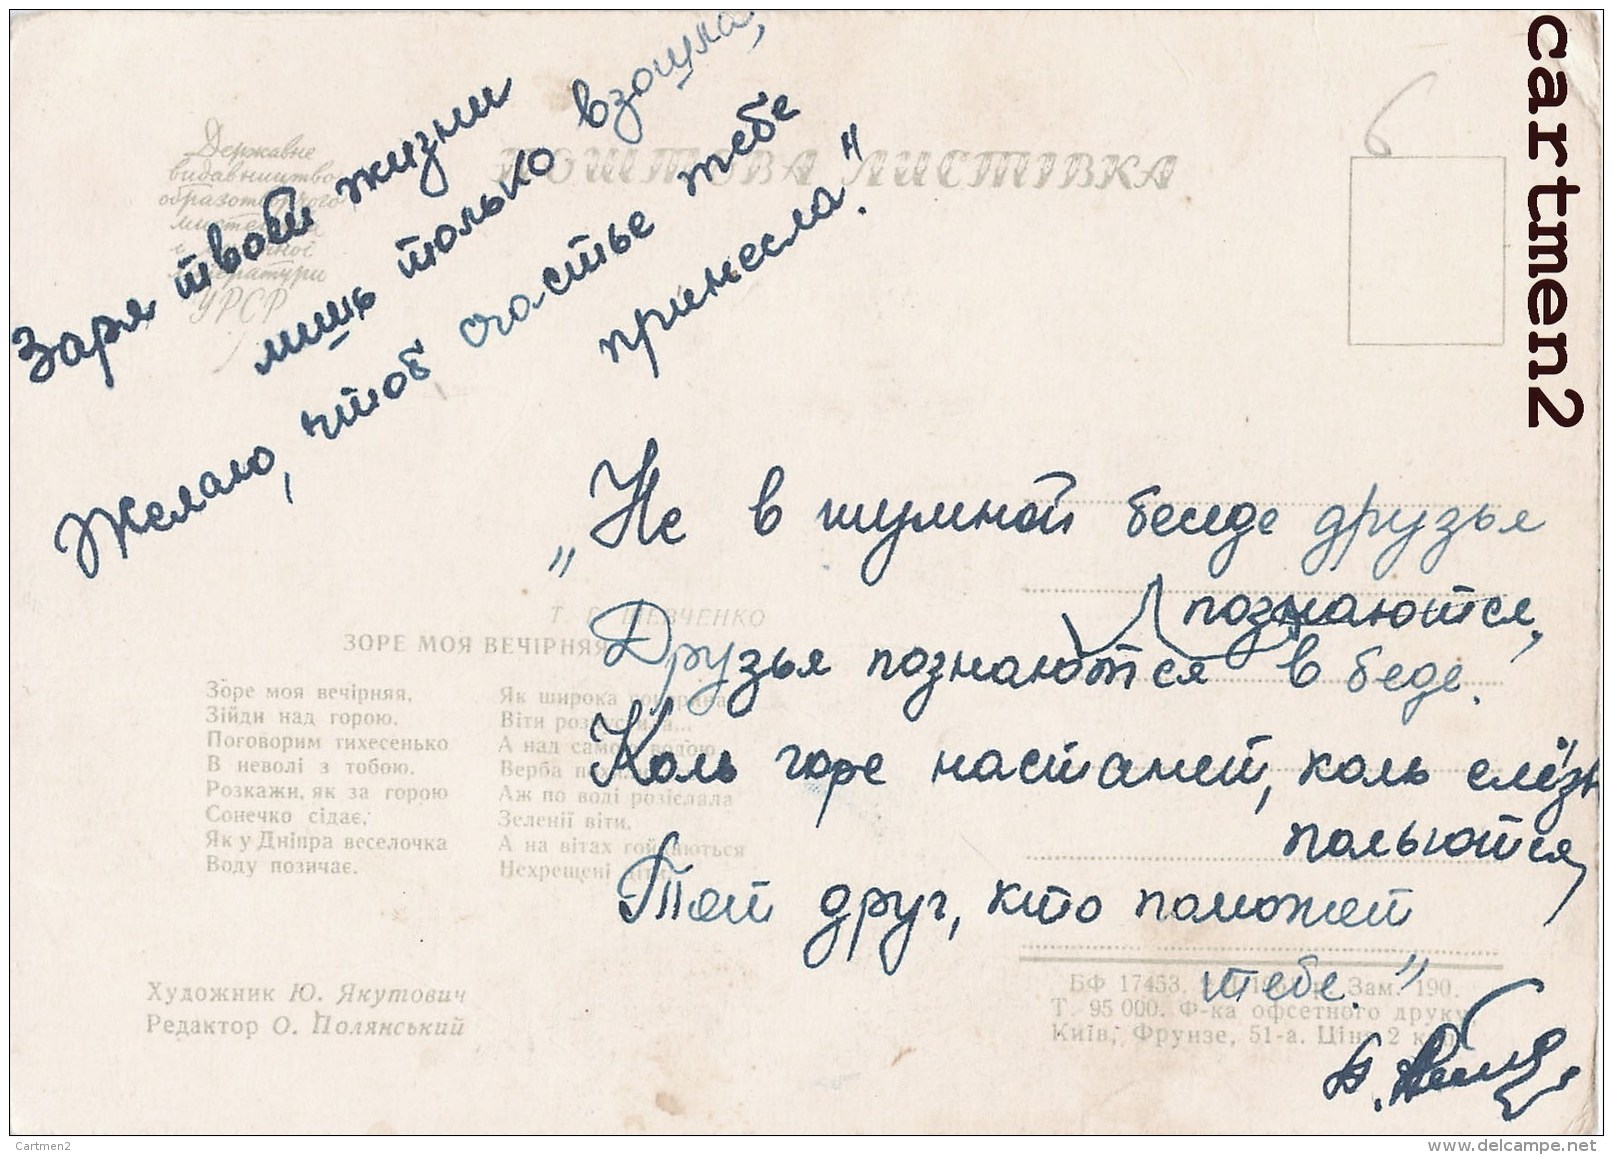 Заря твоей жизни
лишь только взошла,
Желаю, чтоб счастье тебе
принесла."
Державне
видавництво
образотворчого
мистецтва
і музичної
літератури
УРСР
ПОШТОВА ЛИСТІВКА
6
cartmen2
„Не в шумной беседе друзья
познаются,
Друзья познаются в беде.
Коль горе настанет, коль слёзы
польются,
Тот друг, кто поможет
тебе."
Т. Г. ШЕВЧЕНКО
ЗОРЕ МОЯ ВЕЧІРНЯЯ
Зоре моя вечірняя,
Зійди над горою.
Поговорим тихесенько
В неволі з тобою.
Розкажи, як за горою
Сонечко сідає,
Як у Дніпра веселочка
Воду позичає.
Як широка сокорина
Віти розпустила...
А над самою водою
Верба
Аж по воді розіслала
Зеленії віти,
А на вітах гойдаються
Нехрещені діти.
Художник Ю. Якутович
Редактор О. Полянський
БФ 17453. р. Зам. 190.
Т. 95 000. Ф-ка офсетного друку
Київ, Фрунзе, 51-а. Ціна 2 коп.
Cartmen2
www.delcampe.net